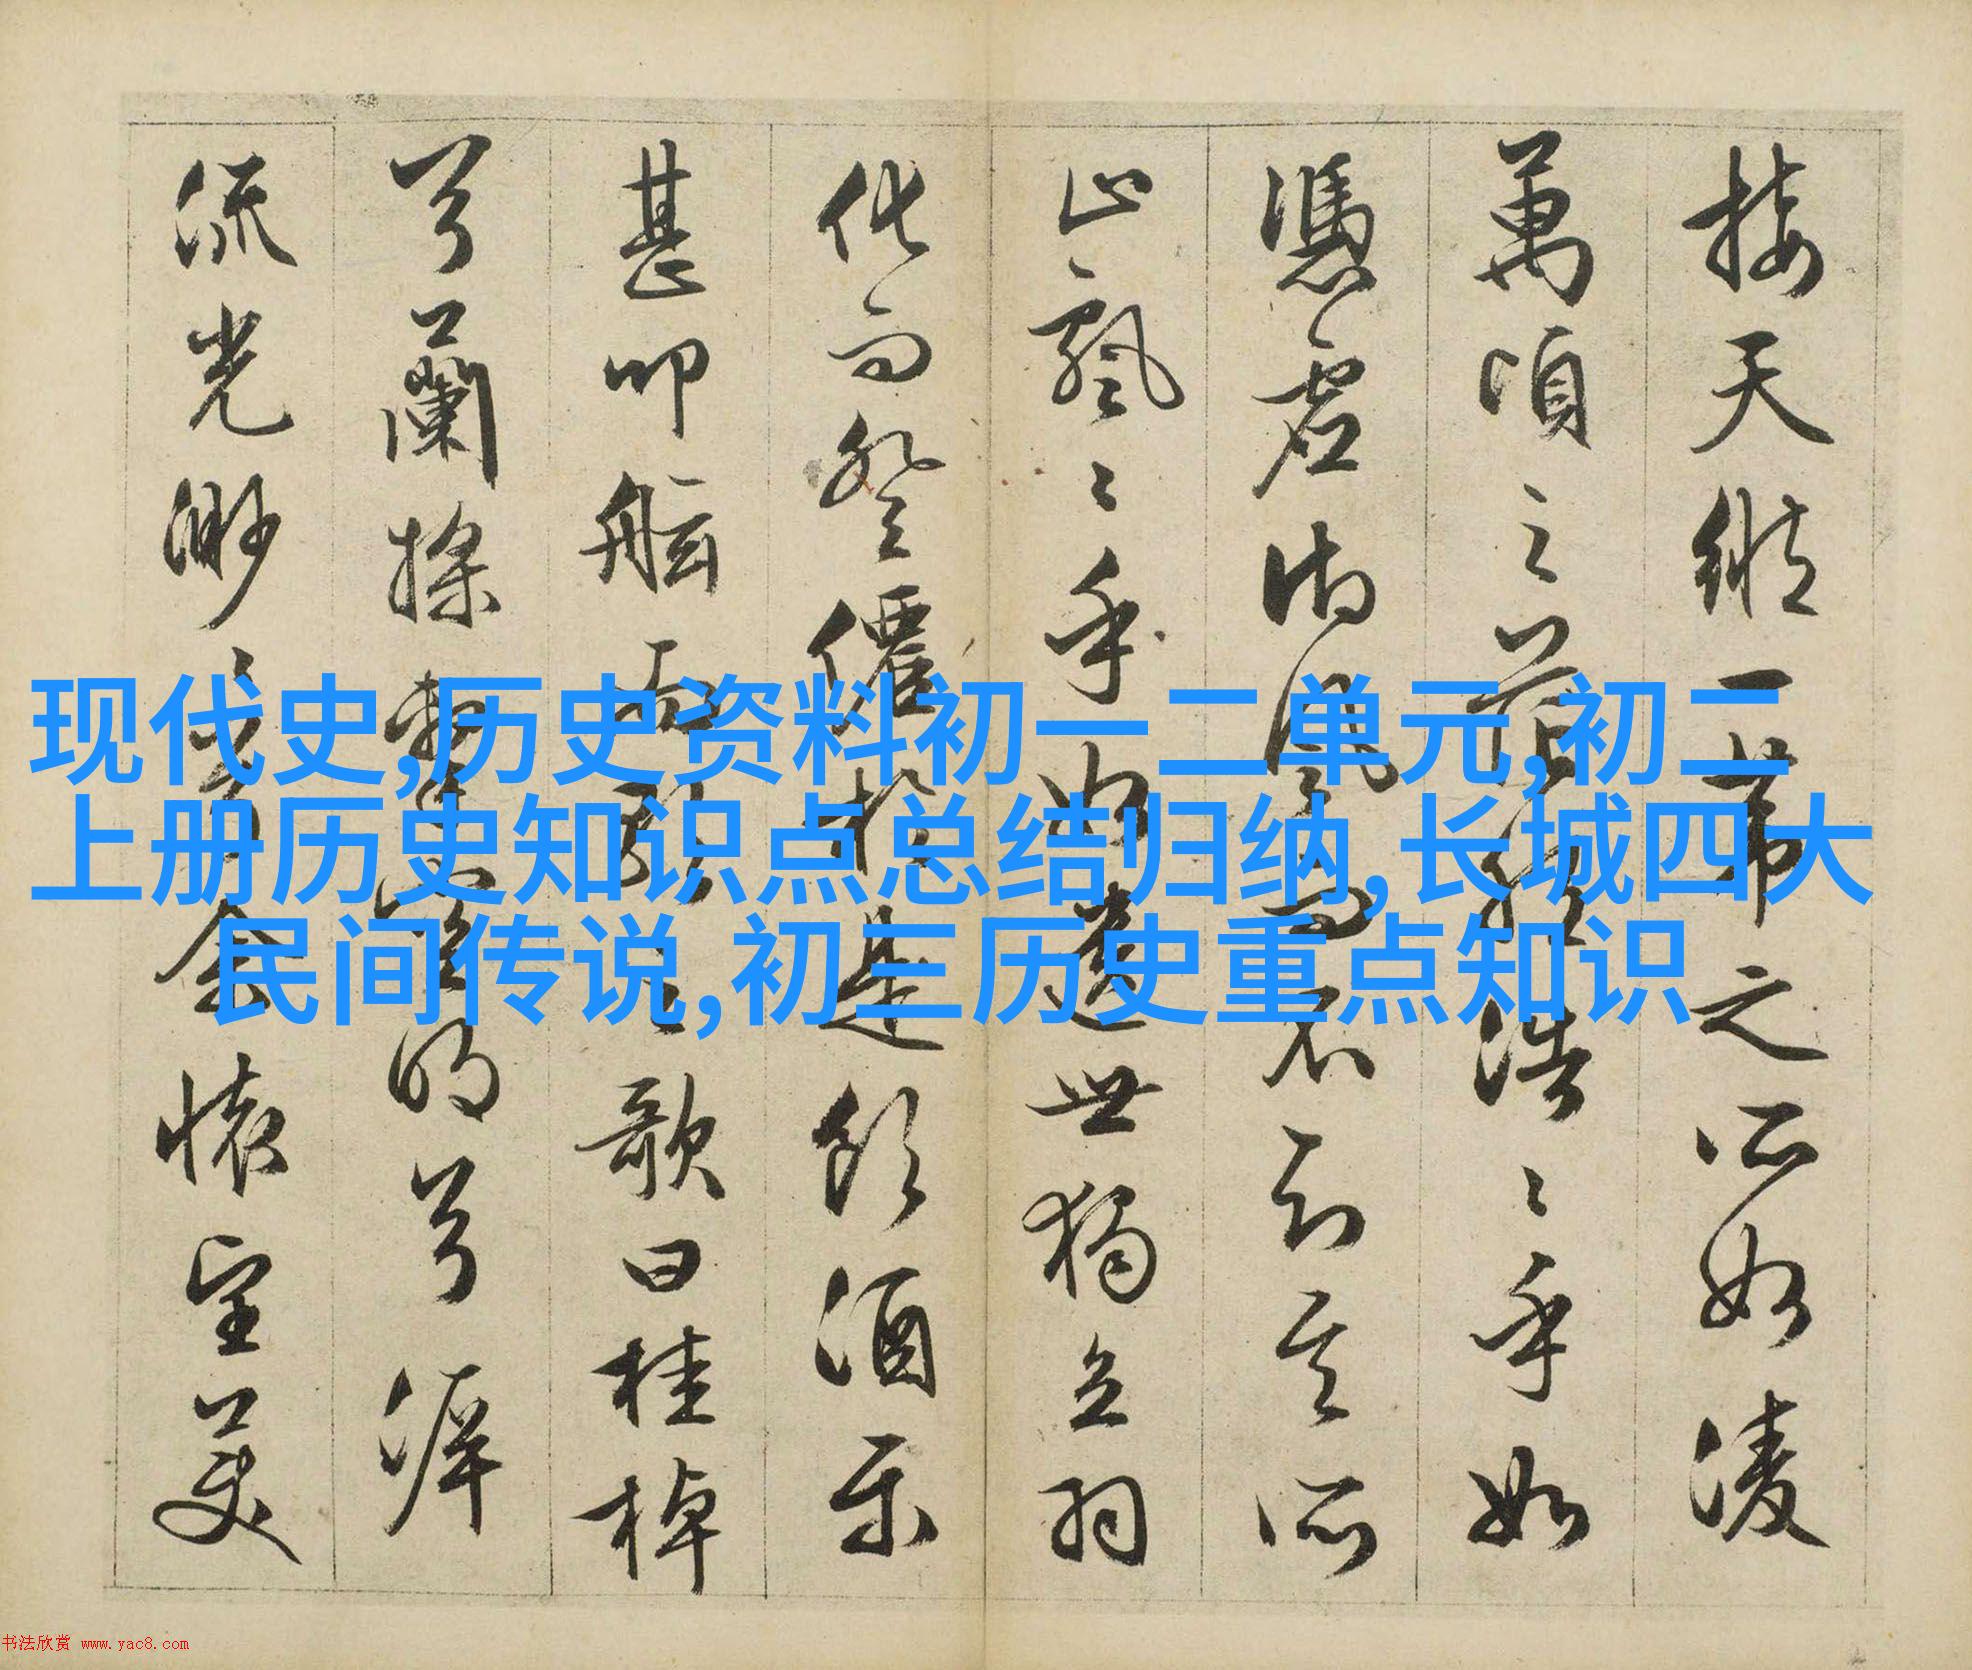 接天縱一葦之所如凌
萬頃之茫然浩〻乎如
憑虛御風而不知其所
止飄〻乎如遺世獨立羽
化而登僊於是飲酒樂
甚叩舷而歌之歌曰桂棹
兮蘭槳擊空明兮泝
流光渺〻兮余懷望美
现代史,历史资料初一二单元,初二
上册历史知识点总结归纳,长城四大
民间传说,初三历史重点知识
书法欣赏 www.yac8.com